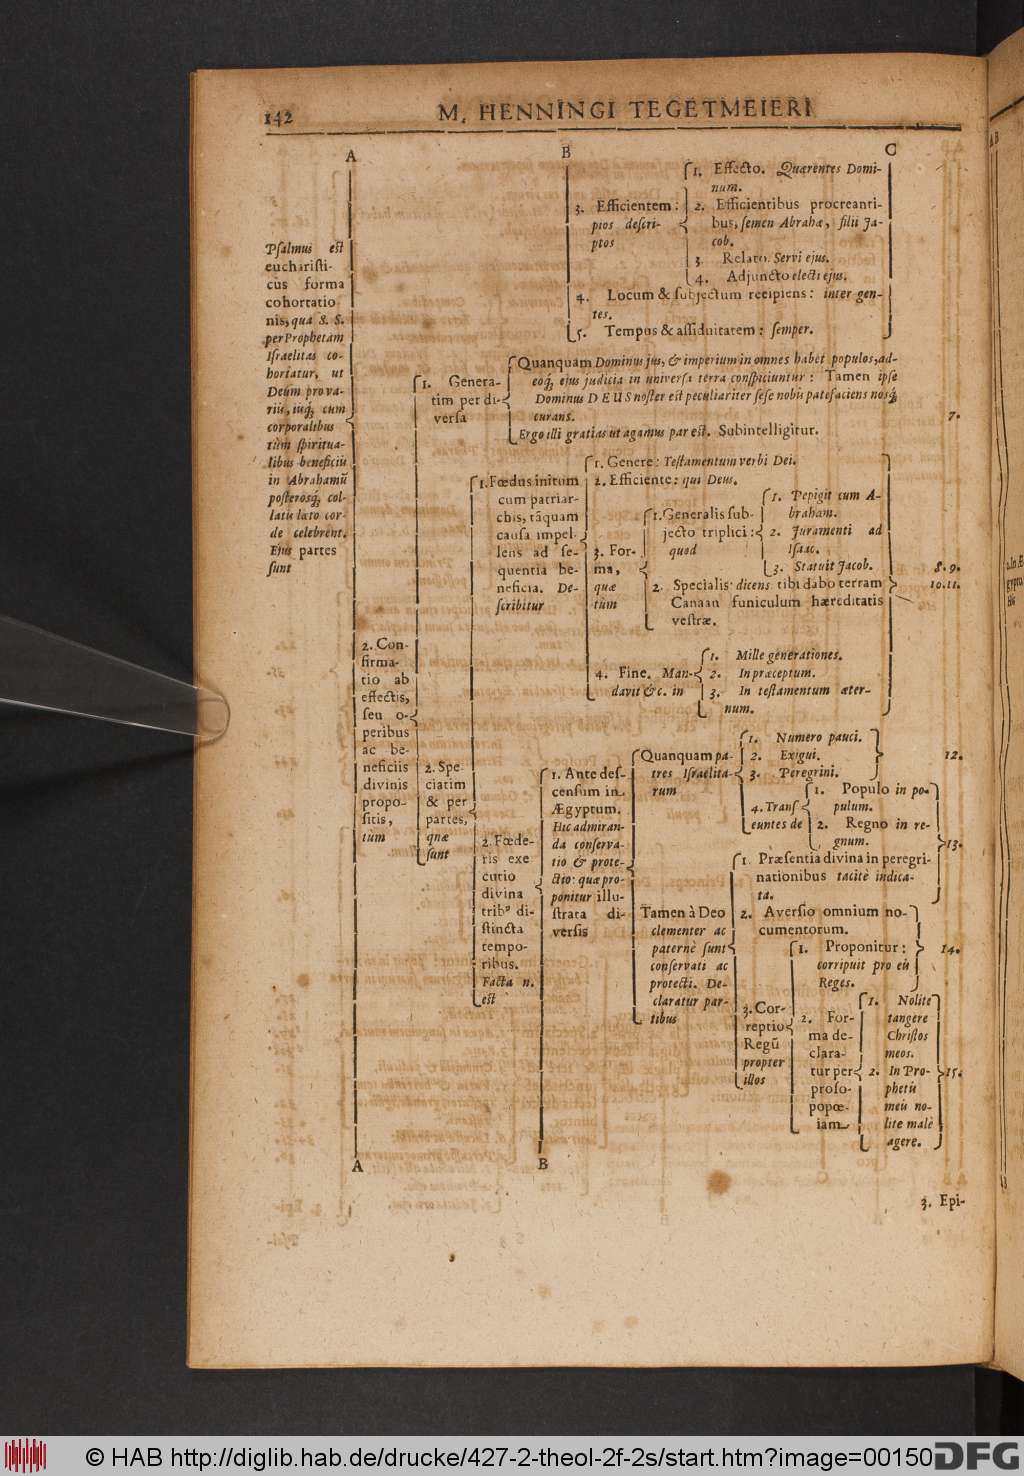 142
M. HENNINGI TEGETMEIERI
A B C
Psalmus est
eucharisti-
cus forma
cohortatio
nis, qua S. S.
per Prophetam
Israelitas co-
hortatur, ut
Deũm pro va-
riis, iisq́, cum
corporalibus
tùm spiritua-
libus beneficiis
in Abrahamũ
posterosq́, col-
latis læto cor-
de celebrent.
Ejus partes
sunt
3. Efficientem:
ptos descri-
ptos
1. Effecto. Quærentes Domi-
num.
2. Efficientibus procreanti-
bus, semen Abrahæ, filii Ja-
cob.
3. Relato. Servi ejus.
4. Adjuncto electi ejus.
4. Locum & subjectum recipiens: inter gen-
tes.
5. Tempus & assiduitatem: semper.
1. Genera-
tim per di-
versa
Quanquam Dominus jus, & imperium in omnes habet populos, ad-
eoq́, ejus judicia in universa terra conspiciuntur: Tamen ipse
Dominus DEUS noster est peculiariter sese nobis patefaciens nosq́,
curans.
7.
Ergo illi gratias ut agamus par est. Subintelligitur.
2. Con-
firma-
tio ab
effectis,
seu o-
peribus
ac be-
neficiis
divinis
propo-
sitis,
tùm
2. Spe-
ciatim
& per
partes,
quæ
sunt
1. Fœdus initum
cum patriar-
chis, tãquam
causa impel-
lens ad se-
quentia be-
neficia. De-
scribitur
1. Genere: Testamentum verbi Dei.
2. Efficiente: qui Deus.
3. For-
ma,
quæ
tùm
1. Generalis sub-
jecto triplici:
quod
1. Pepigit cum A-
braham.
2. Juramenti ad
Isaac.
3. Statuit Jacob.
2. Specialis: dicens tibi dabo terram
Canaan funiculum hæreditatis
vestræ.
8. 9.
10. 11.
4. Fine. Man-
davit &c. in
1. Mille generationes.
2. In præceptum.
3. In testamentum æter-
num.
2. Fœde-
ris exe
cutio
divina
tribꝰ di-
stincta
tempo-
ribus.
Facta n.
est
1. Ante des-
censum in
Ægyptum.
Hic admiran-
da conserva-
tio & prote-
ctio: quæ pro-
ponitur illu-
strata di-
versis
Quanquam pa-
tres Israelita-
rum
1. Numero pauci.
2. Exigui.
3. Peregrini.
12.
4. Trans
euntes de
1. Populo in po-
pulum.
2. Regno in re-
gnum.
13.
Tamen à Deo
clementer ac
paternè sunt
conservati ac
protecti. De-
claratur par-
tibus
1. Præsentia divina in peregri-
nationibus tacitè indica-
ta.
2. Aversio omnium no-
cumentorum.
3. Cor-
reptio
Regũ
propter
illos
1. Proponitur:
corripuit pro eis
Reges.
14.
2. For-
ma de-
clara-
tur per
proso-
popœ-
iam
1. Nolite
tangere
Christos
meos.
2. In Pro-
phetis
meis no-
lite malè
agere.
15.
A B
3. Epi-
© HAB http://diglib.hab.de/drucke/427-2-theol-2f-2s/start.htm?image=00150
DFG